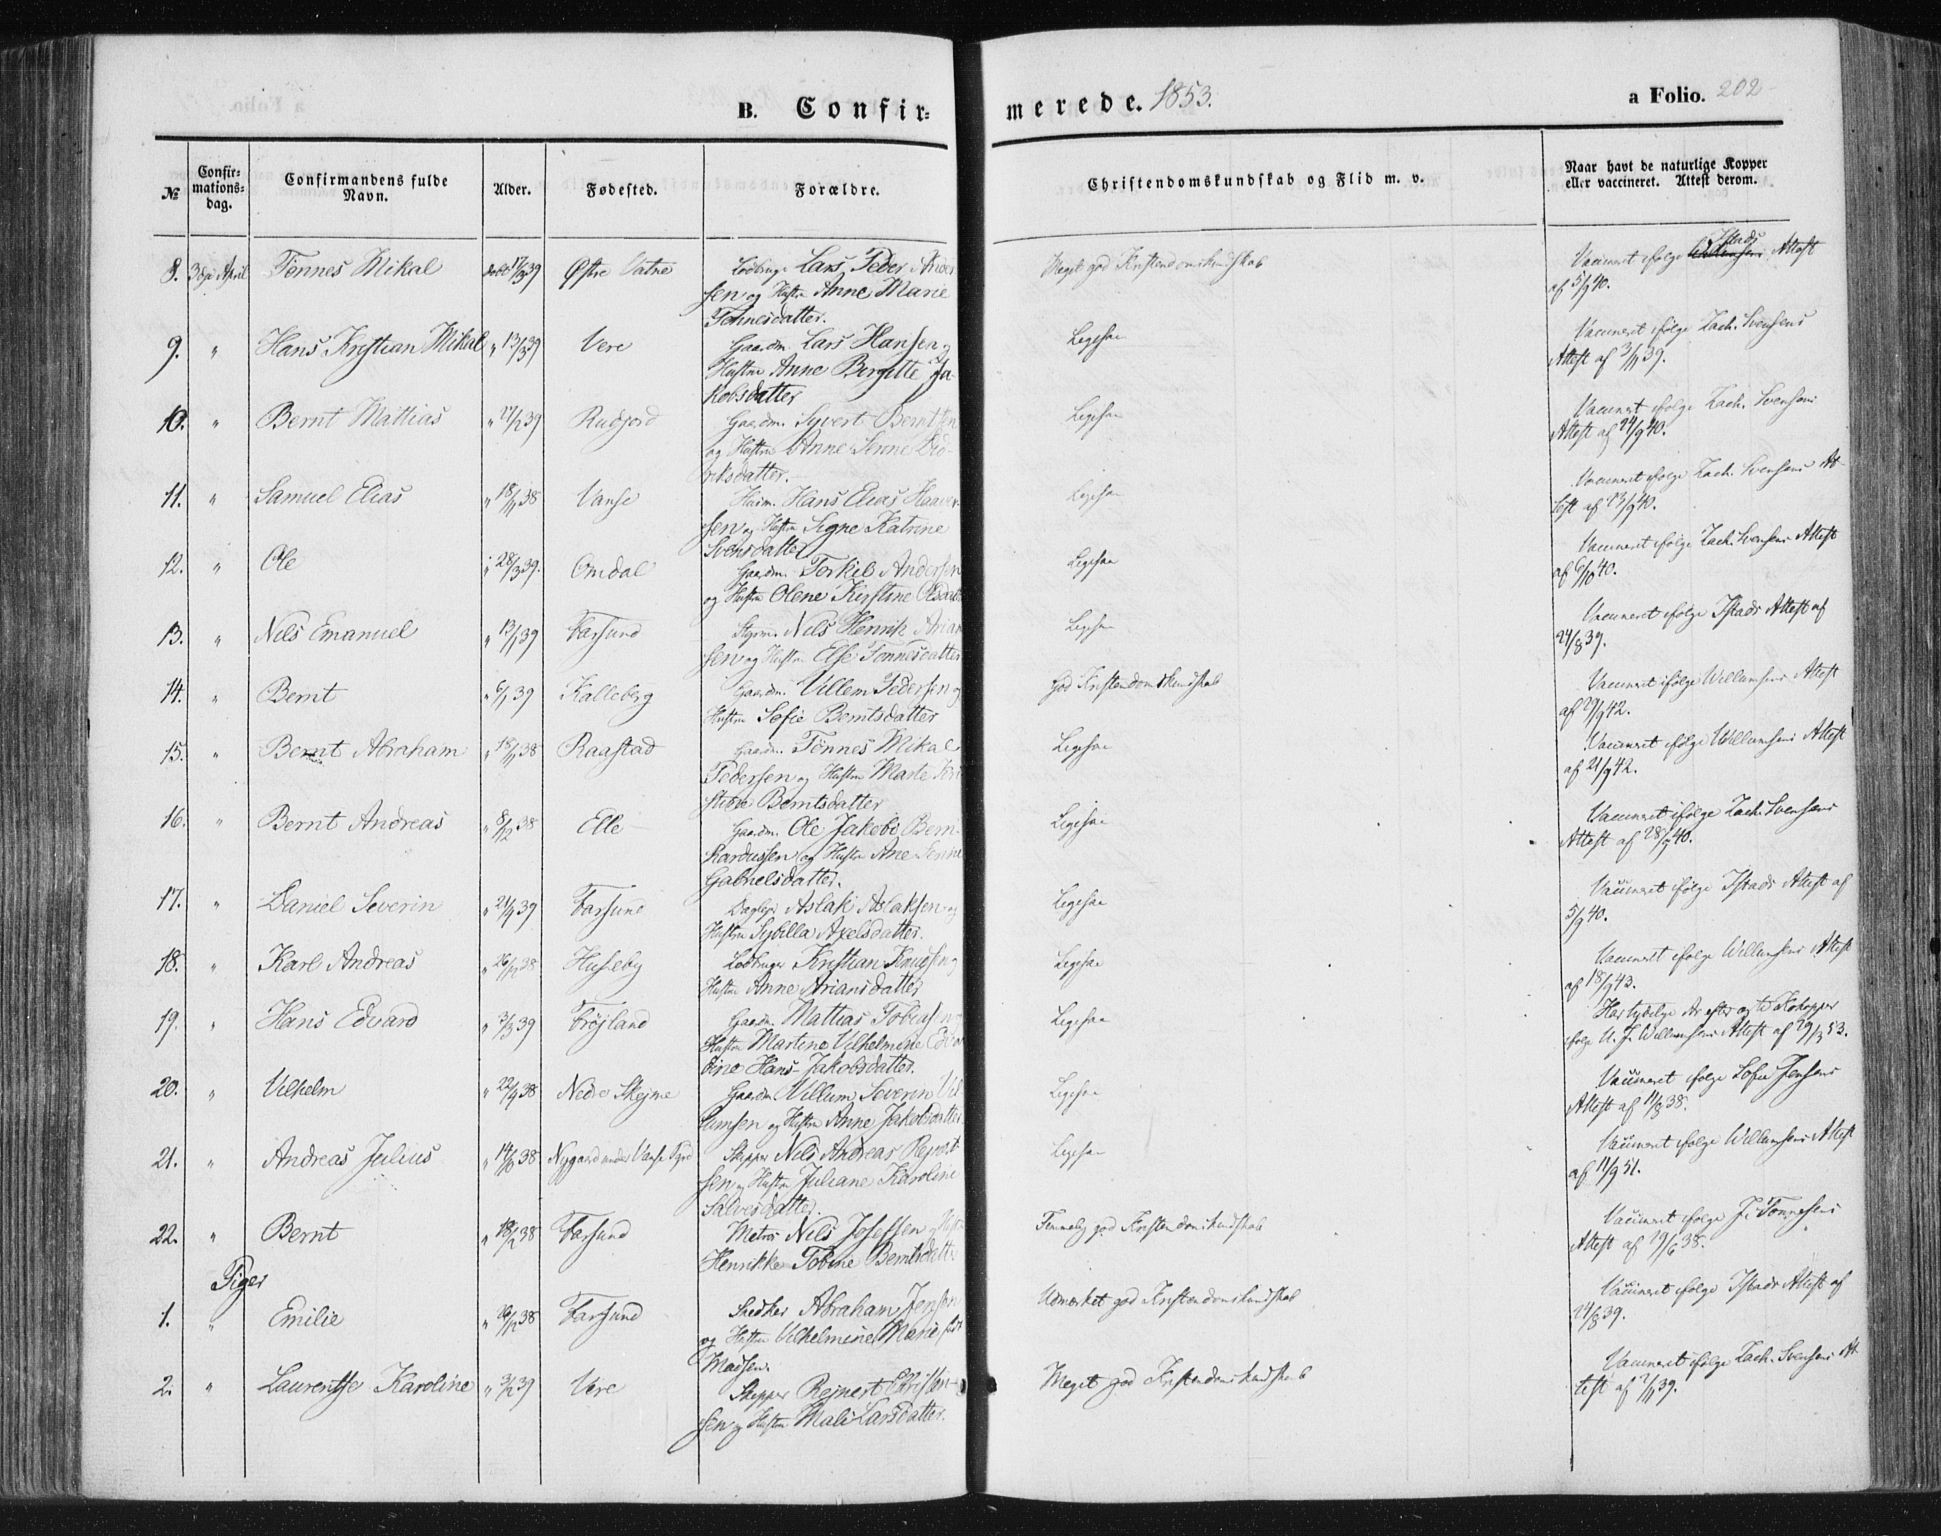 B. Confir-
merede. 1853.
a Folio. 202
No
Confir-
mations-
dag.
Confirmandens fulde
Navn.
Alder.
Fødested.
Forældre.
Christendomskundskab og Flid m. v.
Naar havt de naturlige Kopper
eller vaccineret. Attest derom.
8. 3die April Tønnes Mikal 39 Østre Vatne Lars Peder Ander-
sen og Hustru Anne Marie
Tønnesdatter.
Meget god Kristendomskundskab
Vaccineret ifølge Istads Attest
af 5/9 40.
9. " Hans Kristian Mikal " 13/3 39 Vere Gaardm. Lars Hansen og
Hustru Anne Bergitte Ja-
kobsdatter
Ligesaa
Vaccineret ifølge Zach. Svensens
Attest af 3/11 39.
10. " Bernt Mattias " 39 Rudjord Gaardm. Syvert Berntsen
og Hustru Anne Senne Did-
riksdatter.
Ligesaa
Vaccineret ifølge Zach. Svensens
Attest af 24/9 40.
11. " Samuel Elias " 18/11 38 Vanse Hans Elias Haaver-
sen og Hustru Signe Katrine
Svensdatter
Ligesaa
Vaccineret ifølge Zach. Svensens At-
test af 40.
12. " Ole " 28/3 39. Omdal Gaardm. Torkil Andersen
og Hustru Olene Kirstine Olsdatter
Ligesaa
Vaccineret ifølge Zach. Svensens Attest
af 6/10 40.
13. " Nils Emanuel " 13/1 39 Farsund Styrm. Nils Henrik Arian-
sen og Hustru Else Tønnesdatter
Ligesaa
Vaccineret ifølge Istads Attest af
24/8 39.
14. " Bernt " 6/1 39 Kalleberg Gaardm. Villem Pedersen og
Hustru Sofie Berntsdatter
God Kristendomskundskab
Vaccineret ifølge Willumsens Attest
af 42.
15. " Bernt Abraham " 18/11 38 Raastad Gaardm. Tønnes Mikal
Pedersen og Hustru Marte
Berntsdatter
Ligesaa
Vaccineret ifølge Willumsens Attest
af 21/9 42.
16. " Bernt Andreas " 8/12 38 Elle Gaardm. Ole Jakob Bern-
hardussen og Hustru Ane Senne
Gabrielsdatter.
Ligesaa
Vaccineret ifølge Zach. Svensens
Attest af 28/9 40.
17. " Daniel Severin " 39 Farsund Daglejer Aslak Aslaksen og
Hustru Sybilla Axelsdatter.
Ligesaa
Vaccineret ifølge Istads Attest af
5/9 40.
18. " Karl Andreas " 38 Huseby Kristian Knudsen og
Hustru Anne Ariansdatter
Ligesaa
Vaccineret ifølge Willumsens Attest
af 18/9 43.
19. " Hans Edvard " 39 Frøjland Gaardm. Mattias Tobiassen
Hustru Martine Vilhelmine Edvar-
dine Hans-Jakobsdatter.
Ligesaa
Har tydelige Ar efter Kokopper
ifølge Willumsens Attest af 53.
20. " Vilhelm " 22/9 38 Nedre Skejme Gaardm. Willum Severin Vil-
lumsen og Hustru Anne Jakobsdatter
Ligesaa
Vaccineret ifølge Sofie Jensens
Attest af 38.
21. " Andreas Julius " 38 Nygaard under Vanse Skipper Nils Andreas Rejnert-
sen og Hustru Juliane Karoline
Salvesdatter.
Ligesaa
Vaccineret ifølge Willumsens Attest
af 11/9 51.
22. " Bernt " 38 Farsund Matros Nils Josefsen og Hustru
Henrikke Tobine Berntsdatter
Temmelig god Kristendomskundskab
Vaccineret ifølge J. Tønnesens
Attest af 38.
Piger
1. " Emilie " 38 Farsund Snedker Abraham Jensen
og Hustru Vilhelmine Marie født
Madsen.
Udmærket god Kristendomskundskab
Vaccineret ifølge Istads Attest af
24/8 39.
2. " Laurentse Karoline " 39 Vere Skipper Rejnert Christen-
sen og Hustru Mali Larsdatter.
Meget god Kristendomskundskab
Vaccineret ifølge Zach. Svensens At-
test af 39.